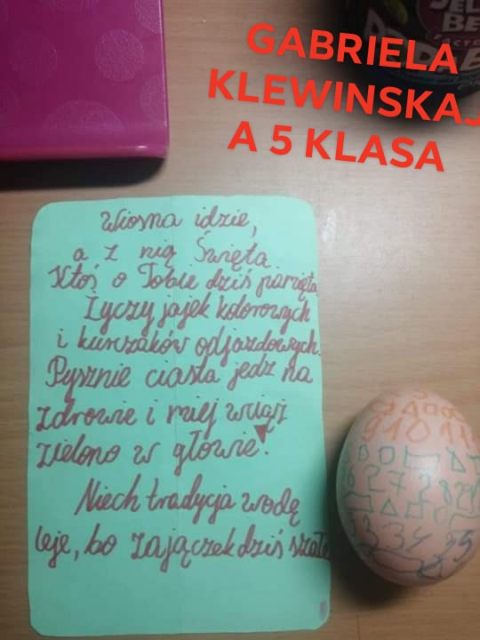 GABRIELA
KLEWINSKAJ
A 5 KLASA
Wiosna idzie,
a z nią Święta
Ktoś o Tobie dziś pamięta
Życzy jajek kolorowych
i kurczaków odjazdowych.
Pysznie ciasta jedz na
zdrowie i miej wciąż
zielono w głowie!
Niech tradycja wodę
leje, bo zajączek dziś
91011